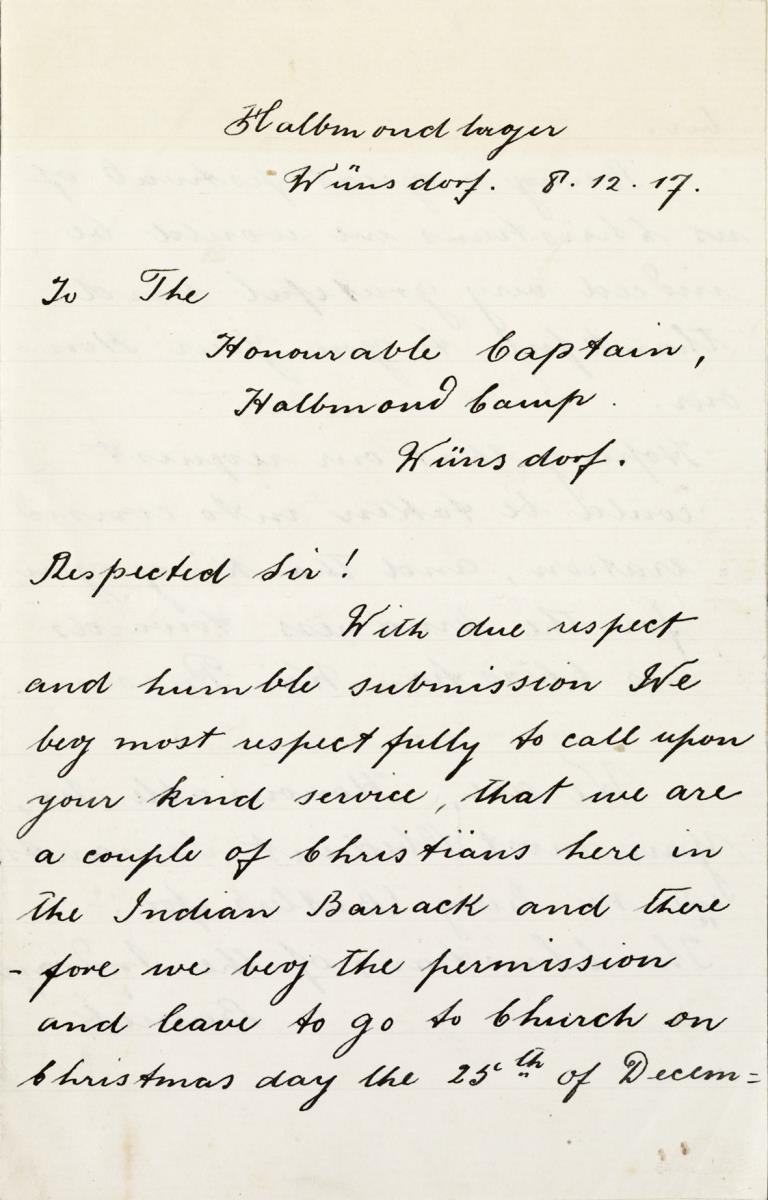 Halbmondlager
Wünsdorf. 8.12.17.
To The
Honourable Captain,
Halbmond Camp.
Wünsdorf.
Respected Sir!
With due respect
and humble submission We
beg most respectfully to call upon
your kind service, that we are
a couple of Christians here in
the Indian Barrack and there
- fore we beg the permission
and leave to go to Church on
Christmas day the 25th of Decem=